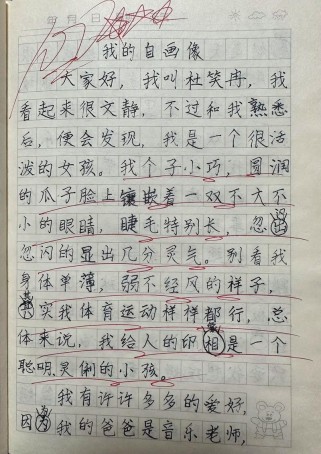 年 月 日
我的自画像
大家好，我叫杜笑冉，我
看起来很文静，不过和我熟悉
后，便会发现，我是一个很活
泼的女孩。我个子小巧，圆润
的瓜子脸上镶嵌着一双不大不
小的眼睛，睫毛特别长，忽闪
忽闪的显出几分灵气。别看我
身体单薄，弱不经风的样子，
其实我体育运动样样都行，总
体来说，我给人的印相是一个
聪明灵俐的小孩。
我有许许多多的爱好，
因为我的爸爸是音乐老师，